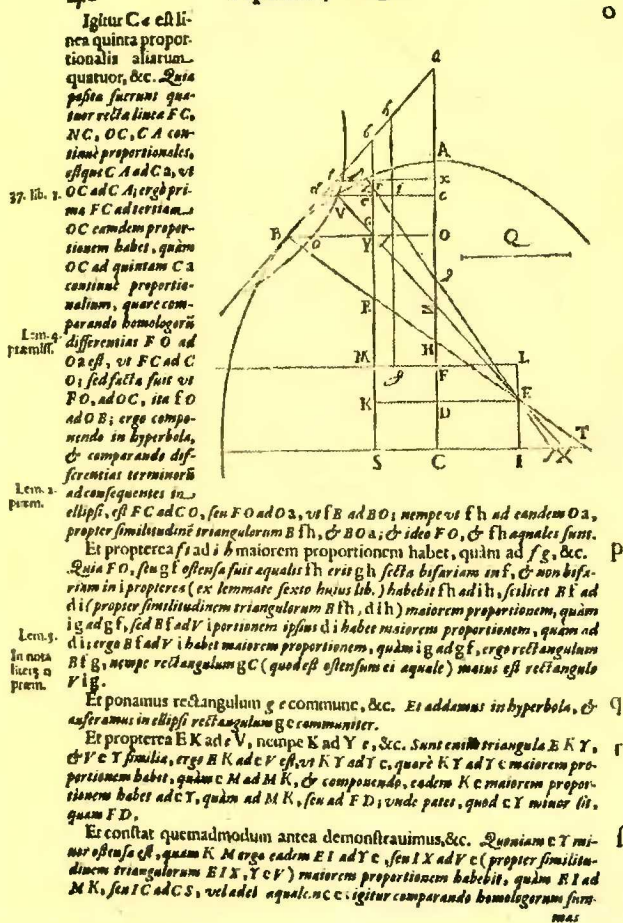 O
Igitur Ca est li-
nea quinta propor-
tionalis aliarum
quatuor, &c. Quia
posita fuerunt qua-
tuor recta linea FC,
NC, OC, CA con-
tinuè proportionales,
estque CA ad Ca, ut
37. lib. 1. OC ad CA; ergo pri-
ma FC ad tertiam
OC eamdem propor-
tionem habet, quàm
OC ad quintam Ca
continuè proportio-
nalium, quare com-
parando homologorũ
Lem. 4. præmiss. differentias FO ad
Oa est, ut FC ad C
O; sed facta fuit ut
FO, ad OC, ita fO
ad OB; ergo compo-
nendo in hyperbola,
& comparando dif-
ferentias terminorũ
Lem. 2. præm. ad consequentes in
ellipsi, est FC ad CO, seu FO ad Oa, ut fB ad BO; nempe ut fh ad eandem Oa,
propter similitudinẽ triangulorum Bfh, & BOa; & ideo FO, & fh aquales sunt.
Et propterea fi ad ih maiorem proportionem habet, quàm ad fg, &c. P
Quia FO, seu gf ostensa fuit aqualis fh erit gh secta bifariam in f, & non bifa-
riam in i propterea (ex lemmate sexto huius lib.) habebit fh ad ih, scilicet Bf ad
di (propter similitudinem triangulorum Bfh, dih) maiorem proportionem, quàm
ig ad gf, sed Bf ad Vi portionem ipsius di habet maiorem proportionem, quam ad
Lem. 5. di; ergo Bf ad Vi habet maiorem proportionem, quàm ig ad gf, ergo rectangulum
In nota Bfg, nempe rectangulum gC (quod est ostensum ei aquale) maius est rectangulo
præm. Vig.
Et ponamus rectangulum ge commune, &c. Et addamus in hyperbola, & q
auferamus in ellipsi rectangulum gc communiter.
Et propterea EK ad eV, nempe K ad Ye, &c. Sunt enim triangula EKY, r
& VcY similia, ergo EK ad cV est, ut KY ad Yc, quarè KY ad Yc maiorem pro-
portionem habet, quàm cM ad MK, & componendo, eadem Kc maiorem propor-
tionem habet ad cY, quàm ad MK, seu ad FD; unde patet, quod cY minor sit,
quàm FD.
Et constat quemadmodum antea demonstrauimus, &c. Quoniam cY mi- ſ
nor ostensa est, quam KM ergo eadem EI ad Yc, seu IX ad Vc (propter similitu-
dinem triangulorum EIX, YcV) maiorem proportionem habebit, quàm EI ad
MK, seu IC ad CS, vel ad ei igitur comparando homologorum sum-
mas
a
b h
A
x
c
V
B O Q
Y
R
M F L
K D E
T
S C I X